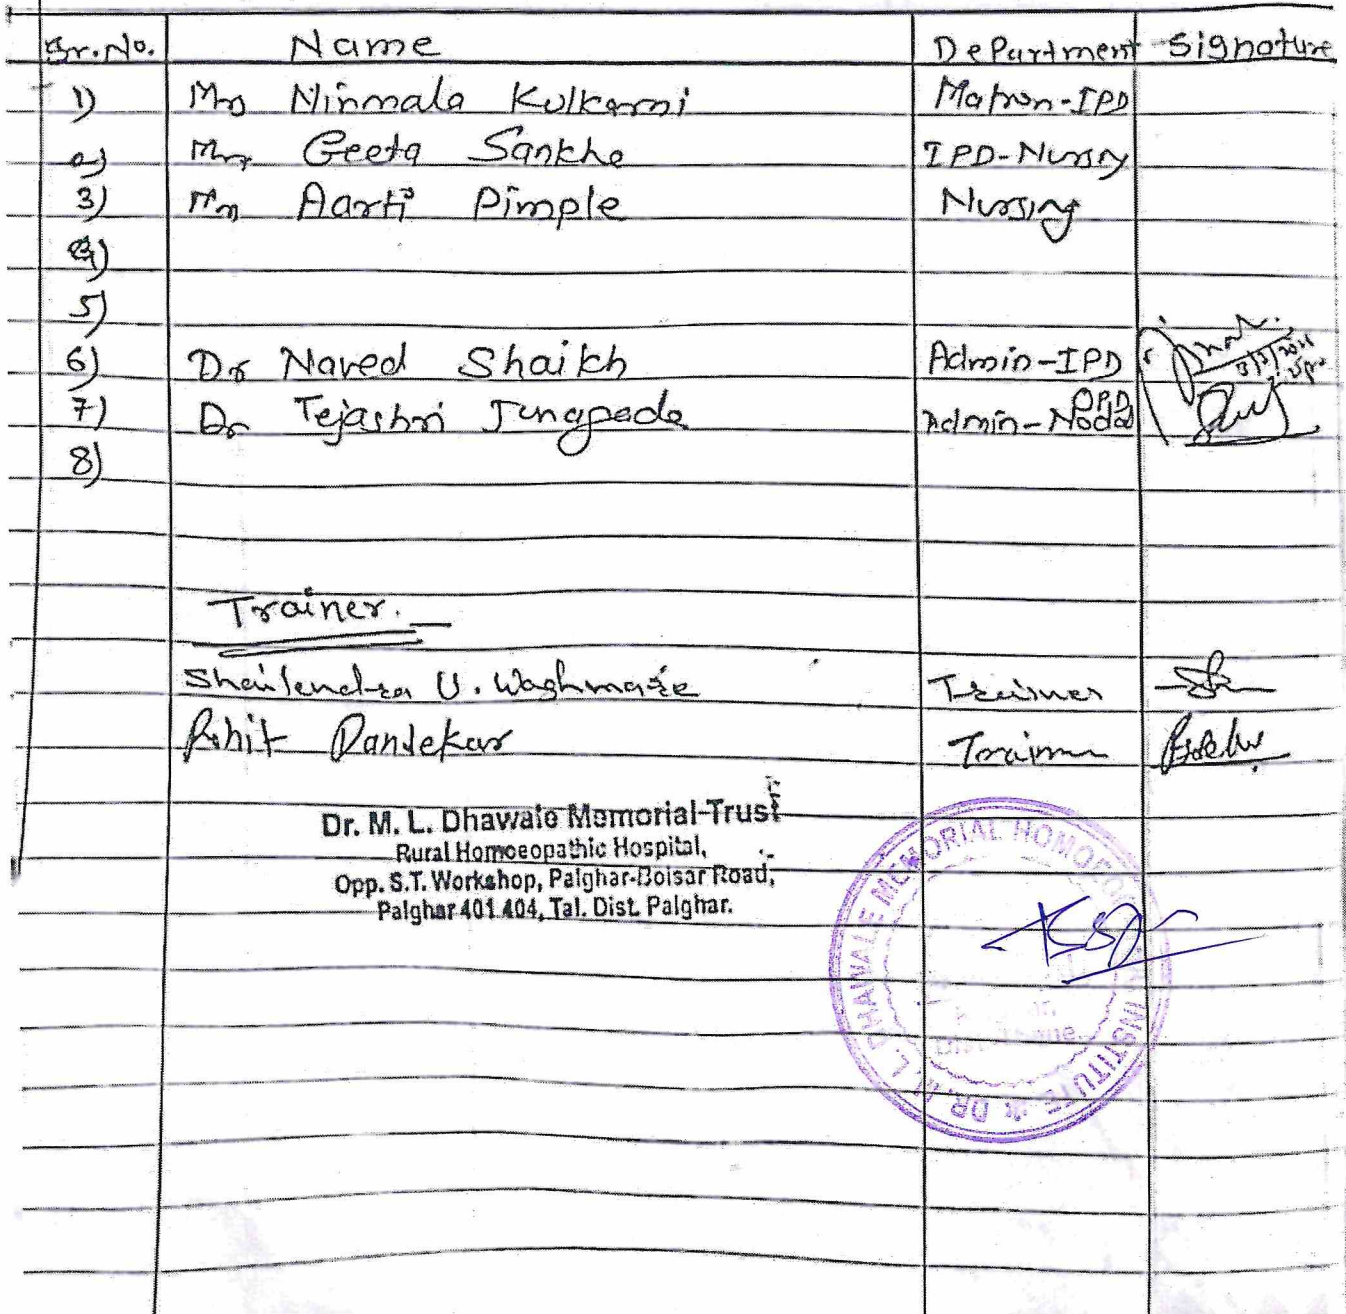 Sr.No. Name Department Signature
1) Mrs Nirmala Kulkarni Matron-IPD
2) Mrs Geeta Sankhe IPD-Nursing
3) Mrs Aarti Pimple Nursing
4)
5)
6) Dr Naved Shaikh Admin-IPD
7) Dr Tejashri Jungpade Admin-Nodal OPD
8)
Trainer.
Shailendra U. Waghmare Trainer
Rohit Dandekar Trainer
Dr. M. L. Dhawale Memorial Trust
Rural Homoeopathic Hospital,
Opp. S.T. Workshop, Palghar-Boisar Road,
Palghar 401 404, Tal. Dist. Palghar.
DR. M. L. DHAWALE MEMORIAL INSTITUTE